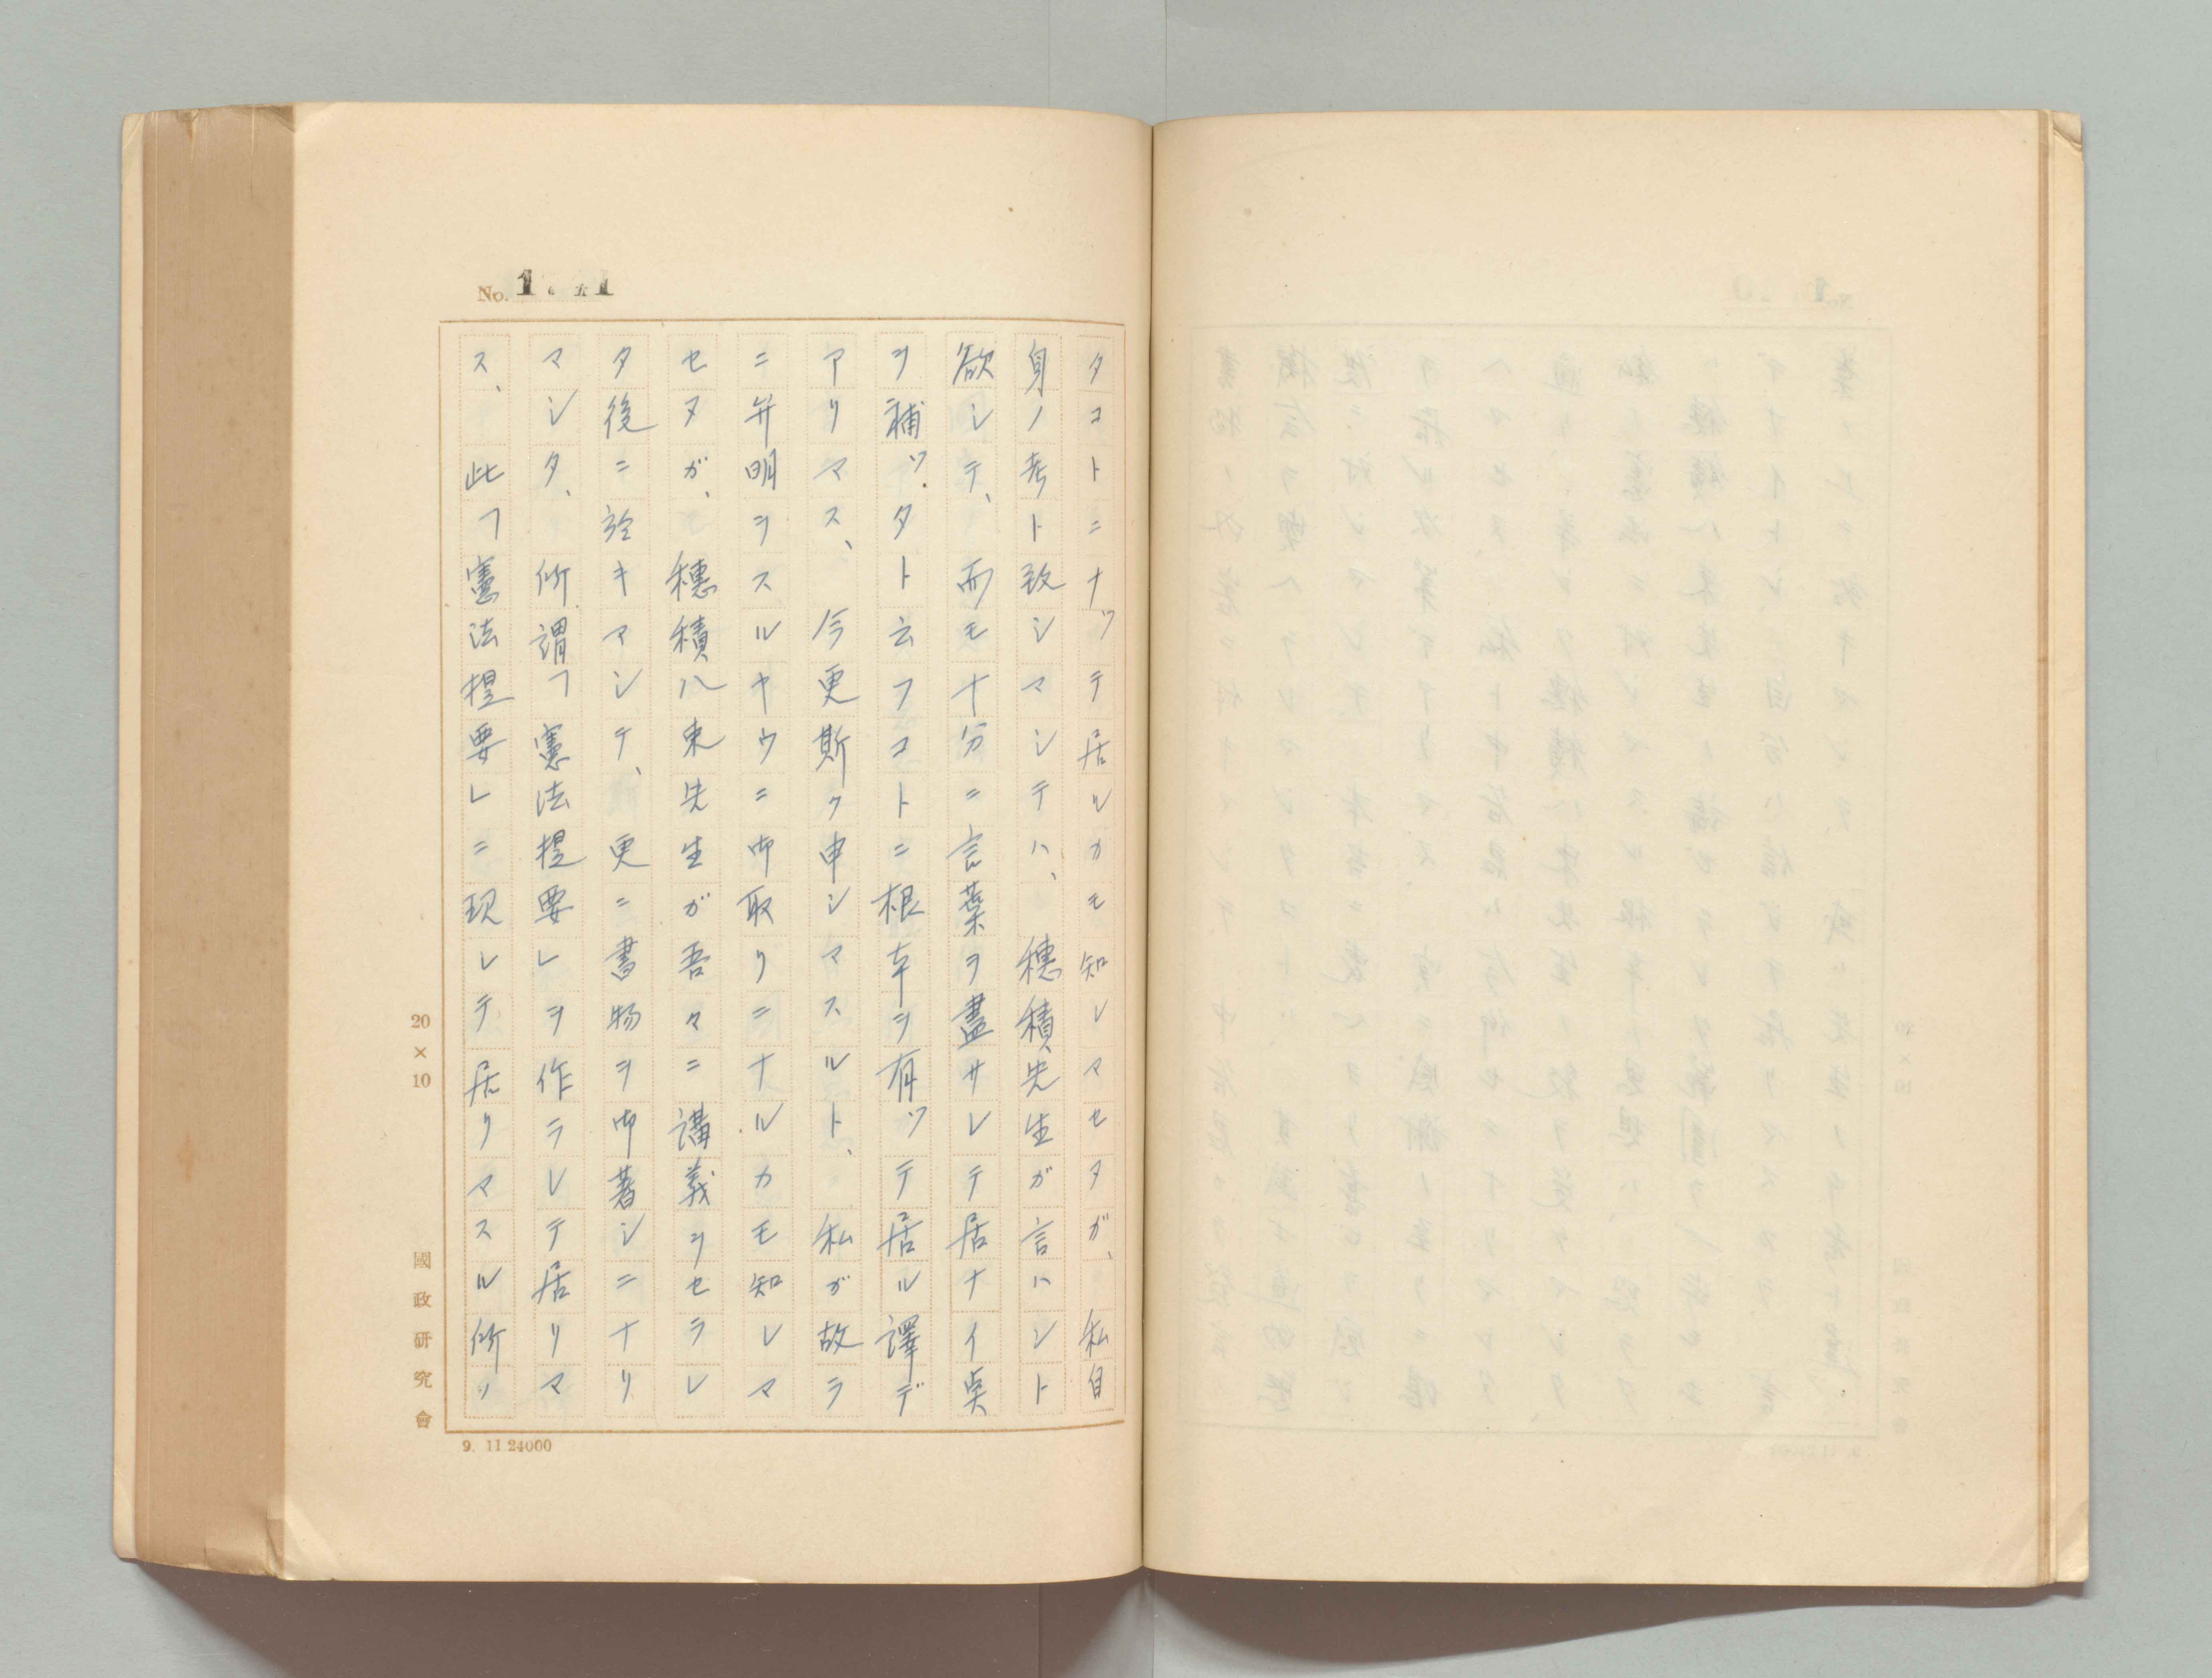 No. 1
タコトニナッテ居ルカモ知レマセヌガ、私自
身ノ考ト致シマシテハ、穗積先生ガ言ハント
欲シテ、而モ十分ニ言葉ヲ盡サレテ居ナイ点
ヲ補ッタト云フコトニ根本ヲ有ッテ居ル譯デ
アリマス、今更斯ク申シマスルト、私ガ故ラ
ニ弁明ヲスルヤウニ御取リニナルカモ知レマ
セヌガ、穗積八束先生ガ吾々ニ講義ヲセラレ
タ後ニ於キマシテ、更ニ書物ヲ御著シニナリ
マシタ、所謂「憲法提要」ヲ作ラレテ居リマ
ス、此「憲法提要」ニ現レテ居リマスル所ノ
20×10
國政研究會
9. 11.24000